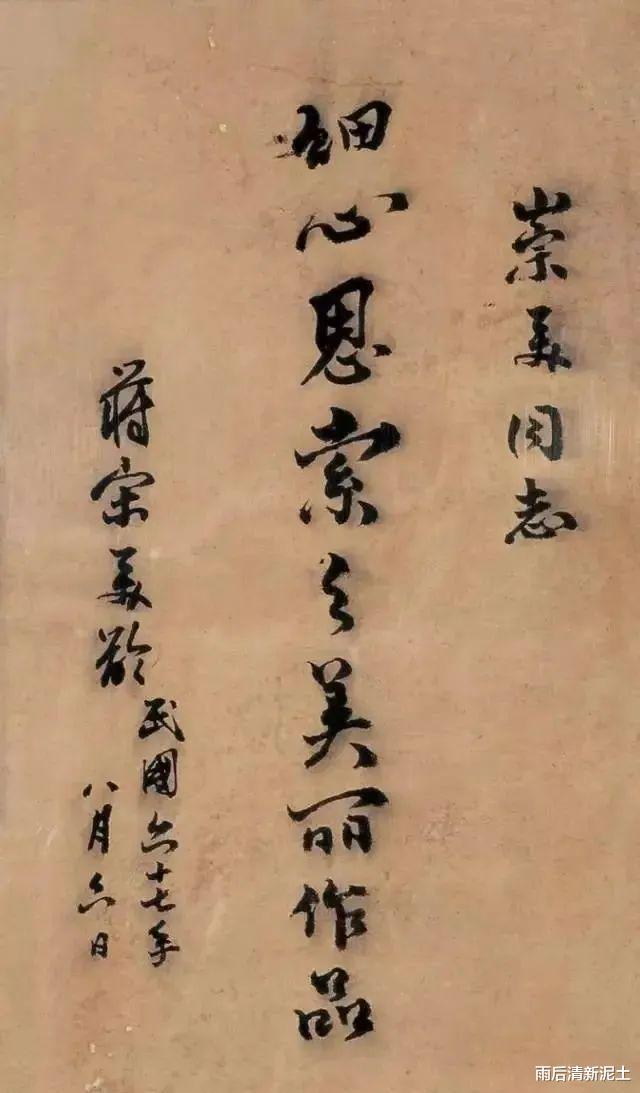 崇美同志
细心思索之美丽作品
蒋宋美龄
民國六十七年
八月六日
雨后清新泥土